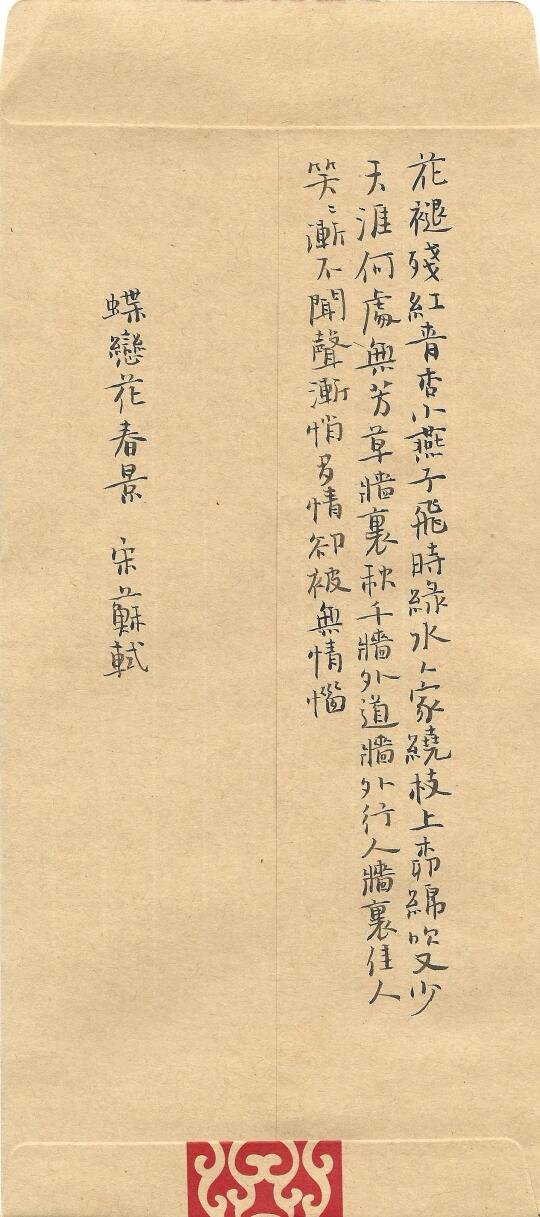 花褪殘紅青杏小燕子飛時綠水人家繞枝上柳綿吹又少
天涯何處無芳草牆裏秋千牆外道牆外行人牆裏佳人
笑笑漸不聞聲漸悄多情卻被無情惱
蝶戀花春景 宋蘇軾